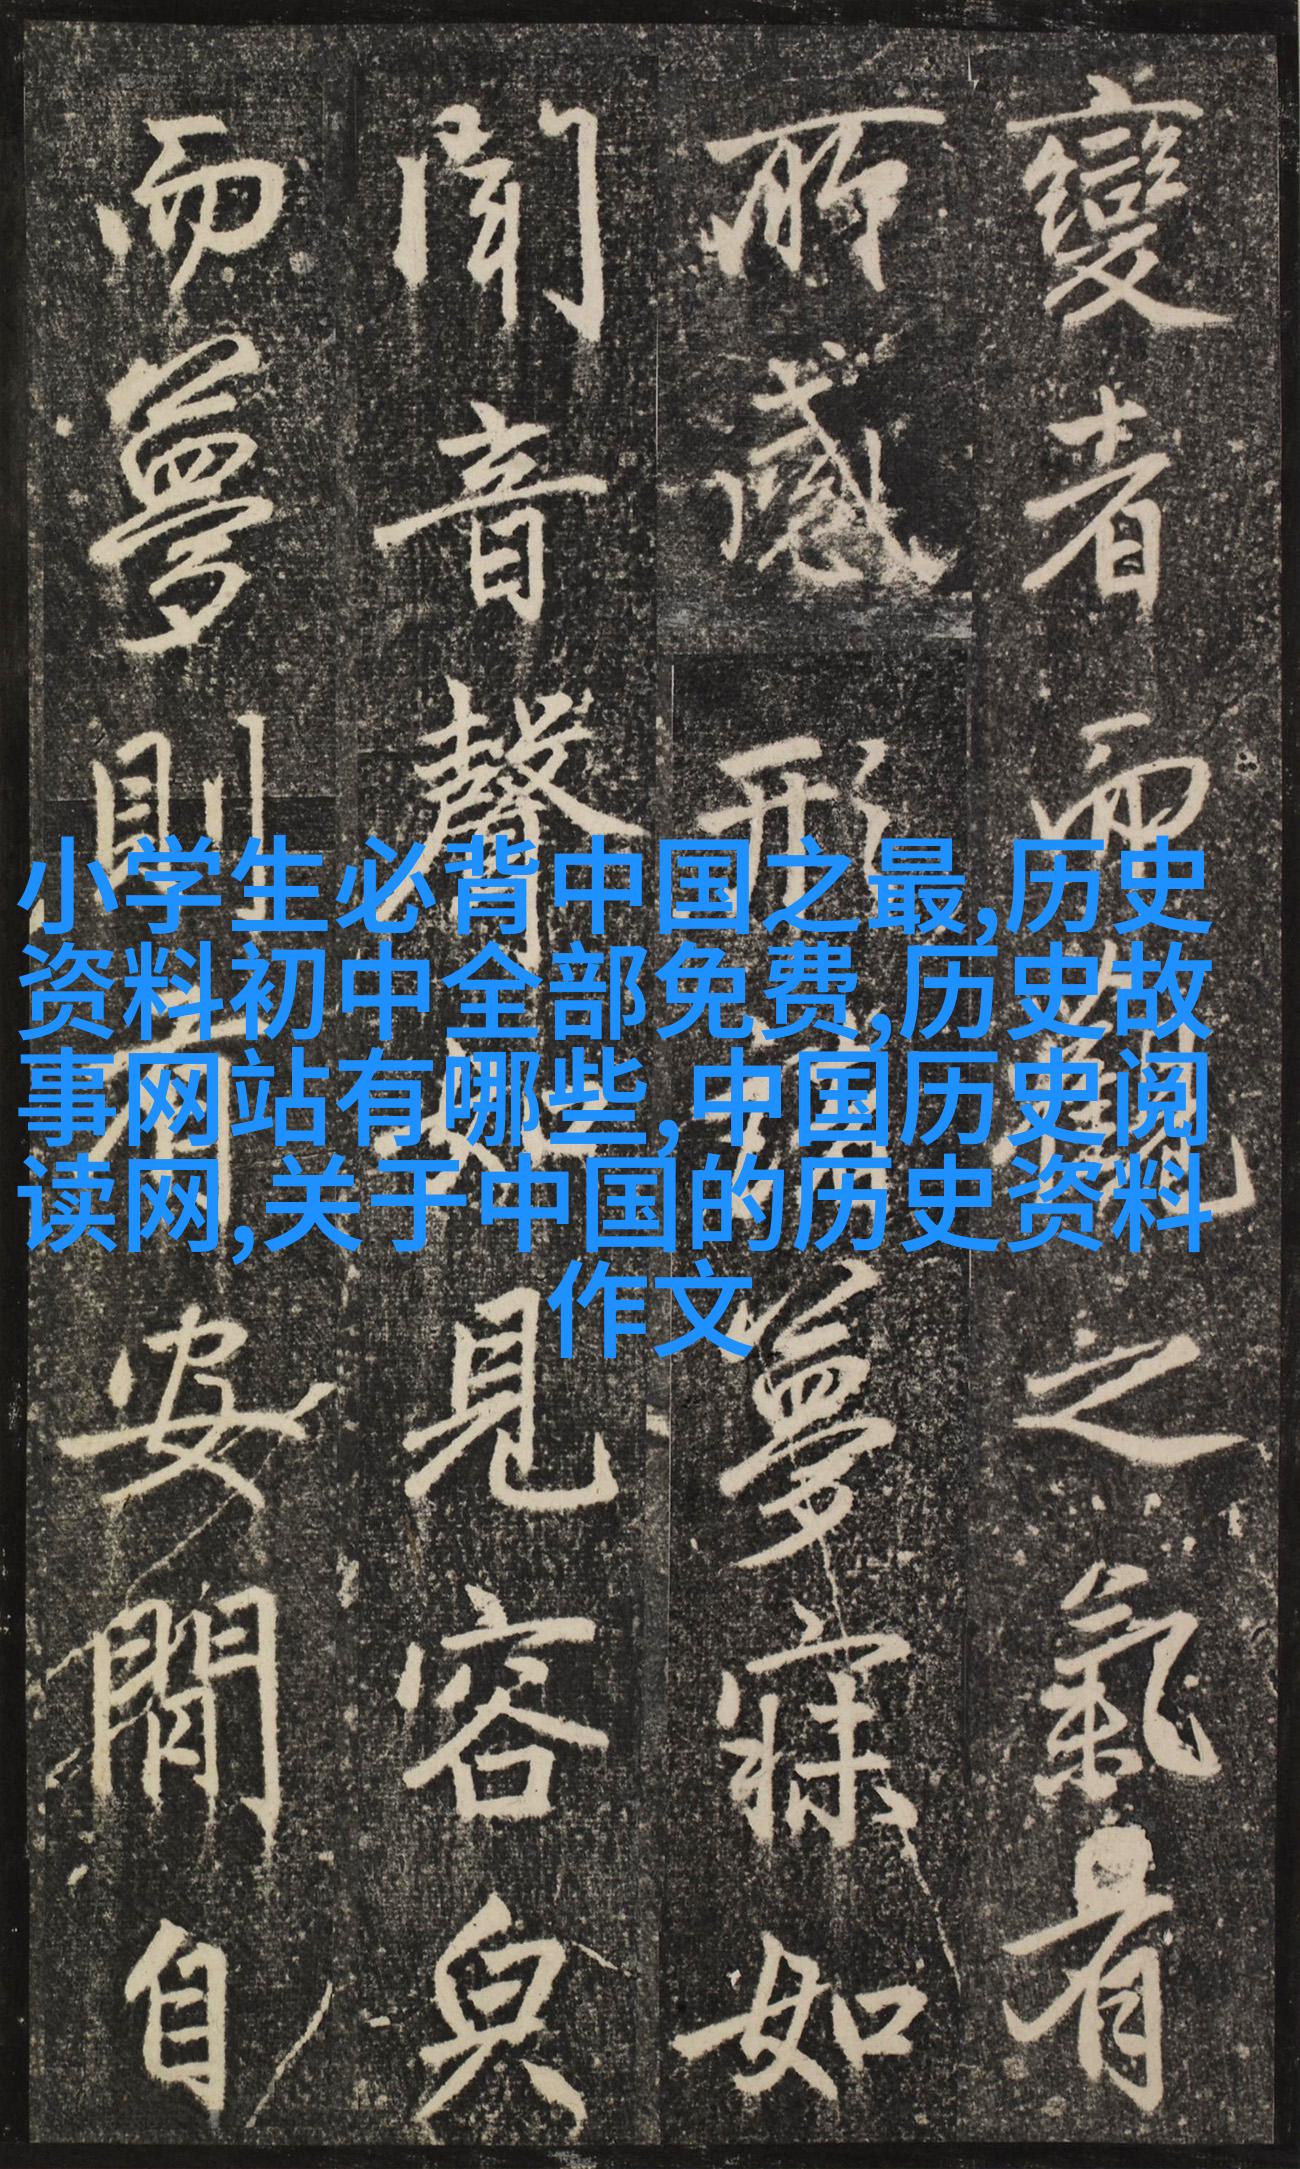 變者而之氣有
所感形夢寐如
聞音聲如見容皃
而夢則有安閒自
小学生必背中国之最,历史
资料初中全部免费,历史故
事网站有哪些,中国历史阅
读网,关于中国的历史资料
作文